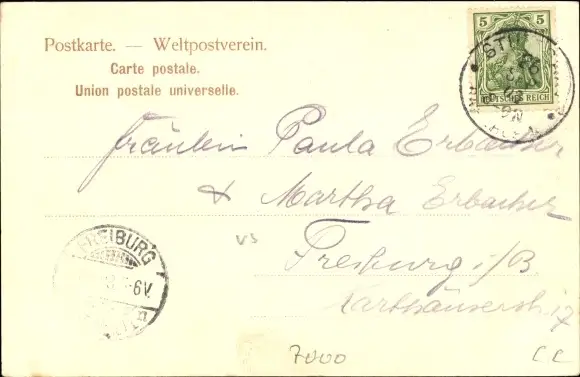 Postkarte. — Weltpostverein.
Carte postale.
Union postale universelle.
5 5
DEUTSCHES REICH
Fräulein Paula Erbacher
& Martha Erbacher
Freiburg i/B
FREIBURG
6V.
vs
7000
CC